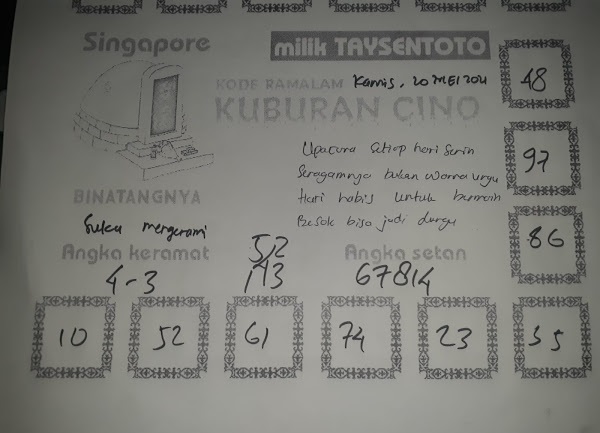 Singapore
milik TAYSENTOTO
KODE RAMALAM Kamis, 20 MEI 2021
KUBURAN CINO
48
Upacara setiap hari senin
Seragamnya bukan warna ungu
Hari habis untuk bermain
Besok bisa jadi
97
BINATANGNYA
Suka mengerami
86
Angka keramat
4-3
5,2
1,13
Angka setan
67814
10
52
61
74
23
35